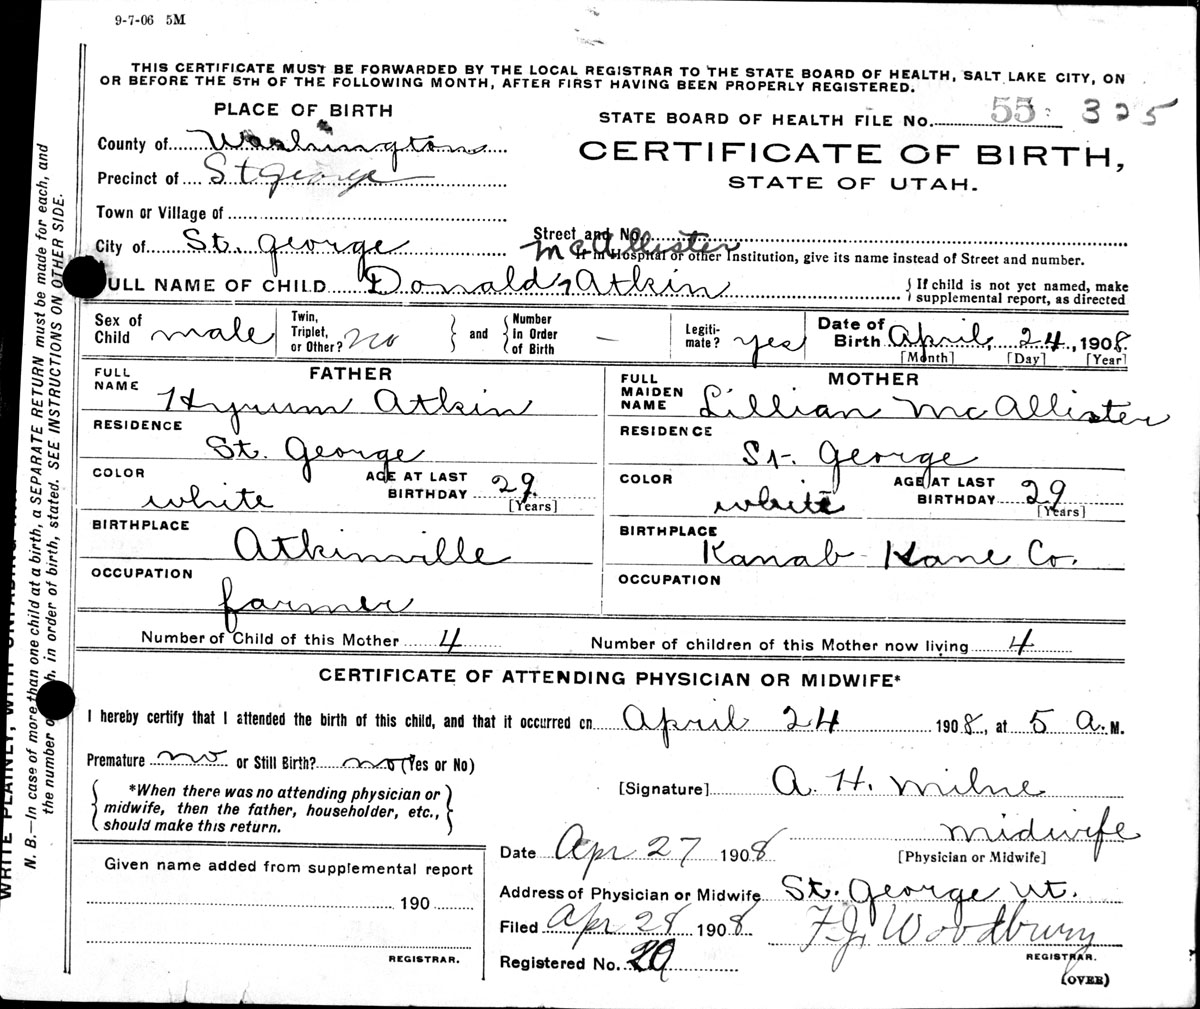 9-7-06 5M
THIS CERTIFICATE MUST BE FORWARDED BY THE LOCAL REGISTRAR TO THE STATE BOARD OF HEALTH, SALT LAKE CITY, ON
OR BEFORE THE 5TH OF THE FOLLOWING MONTH, AFTER FIRST HAVING BEEN PROPERLY REGISTERED.
PLACE OF BIRTH
STATE BOARD OF HEALTH FILE No. 55 325
County of Washington
CERTIFICATE OF BIRTH,
Precinct of St George
STATE OF UTAH.
Town or Village of
City of St. George
Street and No. McAllister
If in Hospital or other Institution, give its name instead of Street and number.
FULL NAME OF CHILD Donald Atkin
{If child is not yet named, make
supplemental report, as directed
Sex of Child male
Twin, Triplet, or Other? no
and
Number in Order of Birth —
Legiti-mate? yes
Date of Birth April, 24, 1908
[Month] [Day] [Year]
FATHER
FULL NAME Hyrum Atkin
RESIDENCE St. George
COLOR white
AGE AT LAST BIRTHDAY 29
[Years]
BIRTHPLACE Atkinville
OCCUPATION farmer
MOTHER
FULL MAIDEN NAME Lillian McAllister
RESIDENCE St. George
COLOR white
AGE AT LAST BIRTHDAY 29
[Years]
BIRTHPLACE Kanab Kane Co.
OCCUPATION
Number of Child of this Mother 4
Number of children of this Mother now living 4
CERTIFICATE OF ATTENDING PHYSICIAN OR MIDWIFE*
I hereby certify that I attended the birth of this child, and that it occurred on April 24 1908, at 5 A.M.
Premature no or Still Birth? no (Yes or No)
*When there was no attending physician or
midwife, then the father, householder, etc.,
should make this return.
[Signature] A. H. Milne
midwife
[Physician or Midwife]
Date Apr 27 1908
Address of Physician or Midwife St. George Ut.
Filed Apr 28 1908 F.J. Woodbury
REGISTRAR.
Registered No. 29
(OVER)
Given name added from supplemental report
190
REGISTRAR.
N. B.—In case of more than one child at a birth, a SEPARATE RETURN must be made for each, and
the number in order of birth, stated. SEE INSTRUCTIONS ON OTHER SIDE.
WRITE PLAINLY, WITH